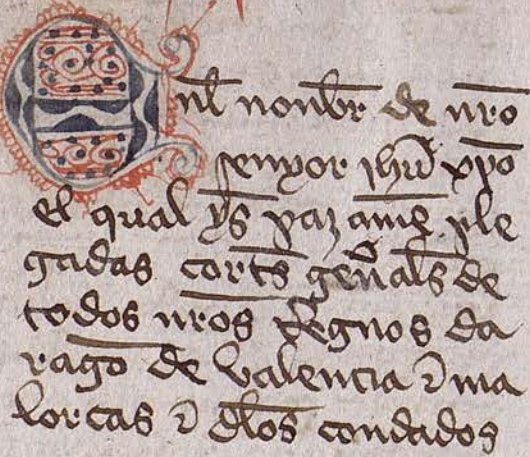 Enl nonbr de nro
senyor ihu xpo
el qual ys paz ame ple
gadas corts genals de
todos nros Regnos da
rago de valencia τ ma
lorcas τ dlos condados